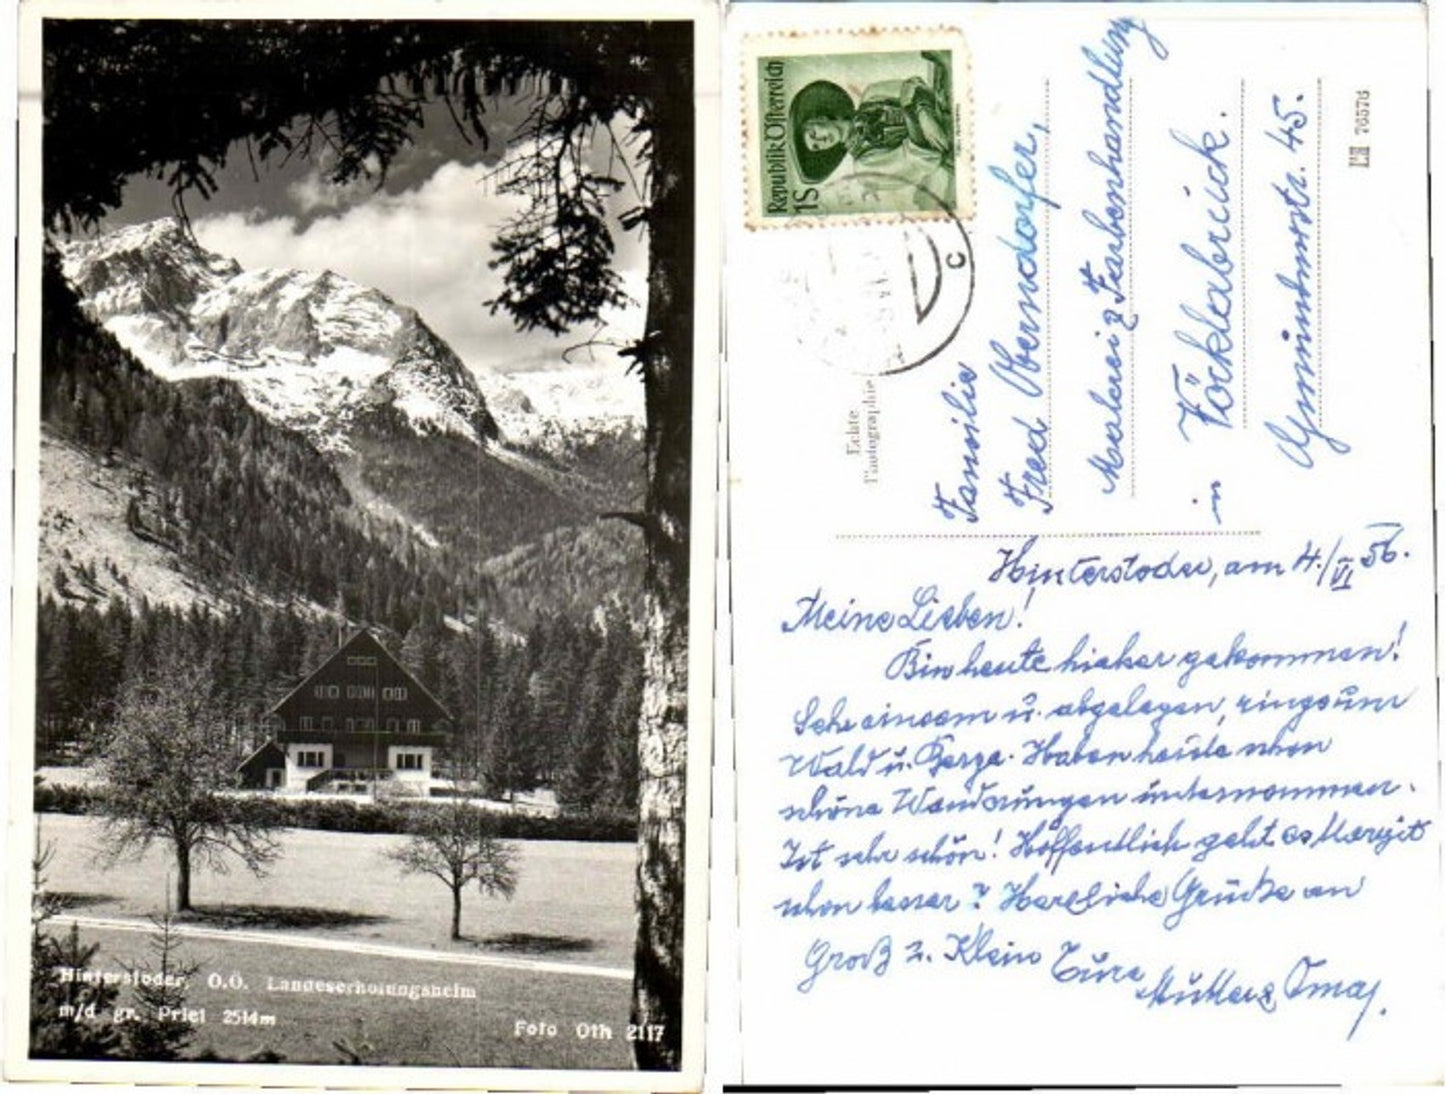 Hinterstoder, O.Ö. Landeserholungsheim
m/d gr. Priel 2514m
Foto Oth 2117
Republik Österreich
1S
C
Echte
Photographie
Familie
Fred Oberndorfer,
Malerei & Farbenhandlung
in Vöcklabruck.
Gmundnerstr. 45.
76576
Hinterstoder, am 4./VI 56.
Meine Lieben!
Bin heute hieher gekommen!
Sehr einsam u. abgelegen, ringsum
Wald u. Berge. Haben heute schon
schöne Wanderungen unternommen.
Ist sehr schön! Hoffentlich geht es Margit
schon besser? Herzliche Grüße an
Groß u. Klein Eure
Mutter & Oma.